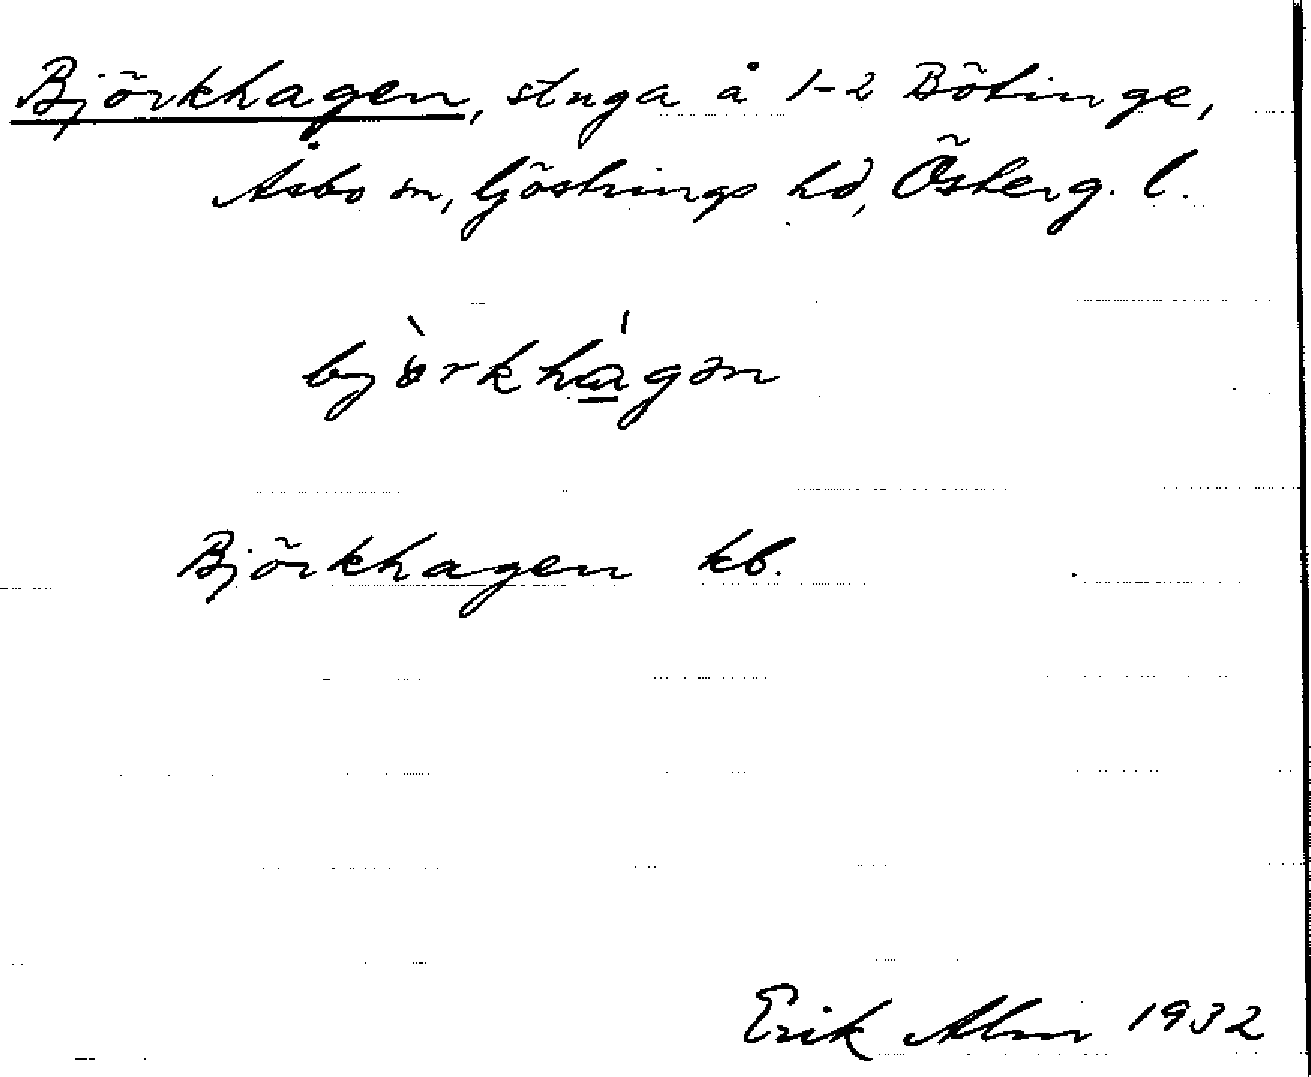 Björkhagen, stuga å 1-2 Bötinge,
Åsbo sn, Göstrings hd, Österg. l.
bjòrkhágən
Björkhagen kb.
Erik Alm 1932